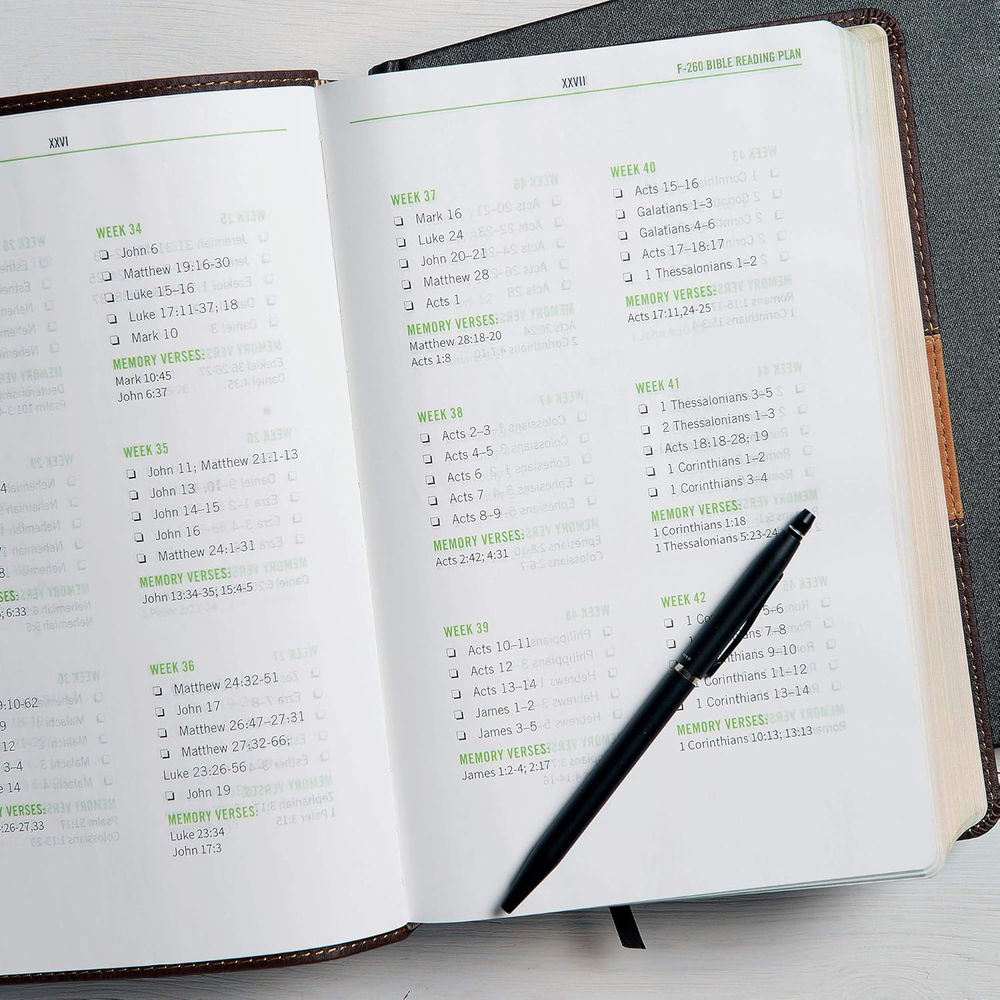 XXVI
9:10-62
12
3-4
14
6:33
:26-27,33
WEEK 34
John 6
Matthew 19:16-30
Luke 15–16
Luke 17:11-37; 18
Mark 10
MEMORY VERSES:
Mark 10:45
John 6:37
WEEK 35
John 11; Matthew 21:1-13
John 13
John 14–15
John 16
Matthew 24:1-31
MEMORY VERSES:
John 13:34-35; 15:4-5
WEEK 36
Matthew 24:32-51
John 17
Matthew 26:47–27:31
Matthew 27:32-66;
Luke 23:26-56
John 19
MEMORY VERSES:
Luke 23:34
John 17:3
XXVII
F-260 BIBLE READING PLAN
WEEK 37
Mark 16
Luke 24
John 20–21
Matthew 28
Acts 1
MEMORY VERSES:
Matthew 28:18-20
Acts 1:8
WEEK 38
Acts 2–3
Acts 4–5
Acts 6
Acts 7
Acts 8–9
MEMORY VERSES:
Acts 2:42; 4:31
WEEK 39
Acts 10–11
Acts 12
Acts 13–14
James 1–2
James 3–5
MEMORY VERSES:
James 1:2-4; 2:17
WEEK 40
Acts 15–16
Galatians 1–3
Galatians 4–6
Acts 17–18:17
1 Thessalonians 1–2
MEMORY VERSES:
Acts 17:11,24-25
WEEK 41
1 Thessalonians 3–5
2 Thessalonians 1–3
Acts 18:18-28; 19
1 Corinthians 1–2
1 Corinthians 3–4
MEMORY VERSES:
1 Corinthians 1:18
1 Thessalonians 5:23-24
WEEK 42
1 Co 5–6
7–8
thians 9–10
1 Corinthians 11–12
1 Corinthians 13–14
MEMORY VERSES:
1 Corinthians 10:13; 13:13